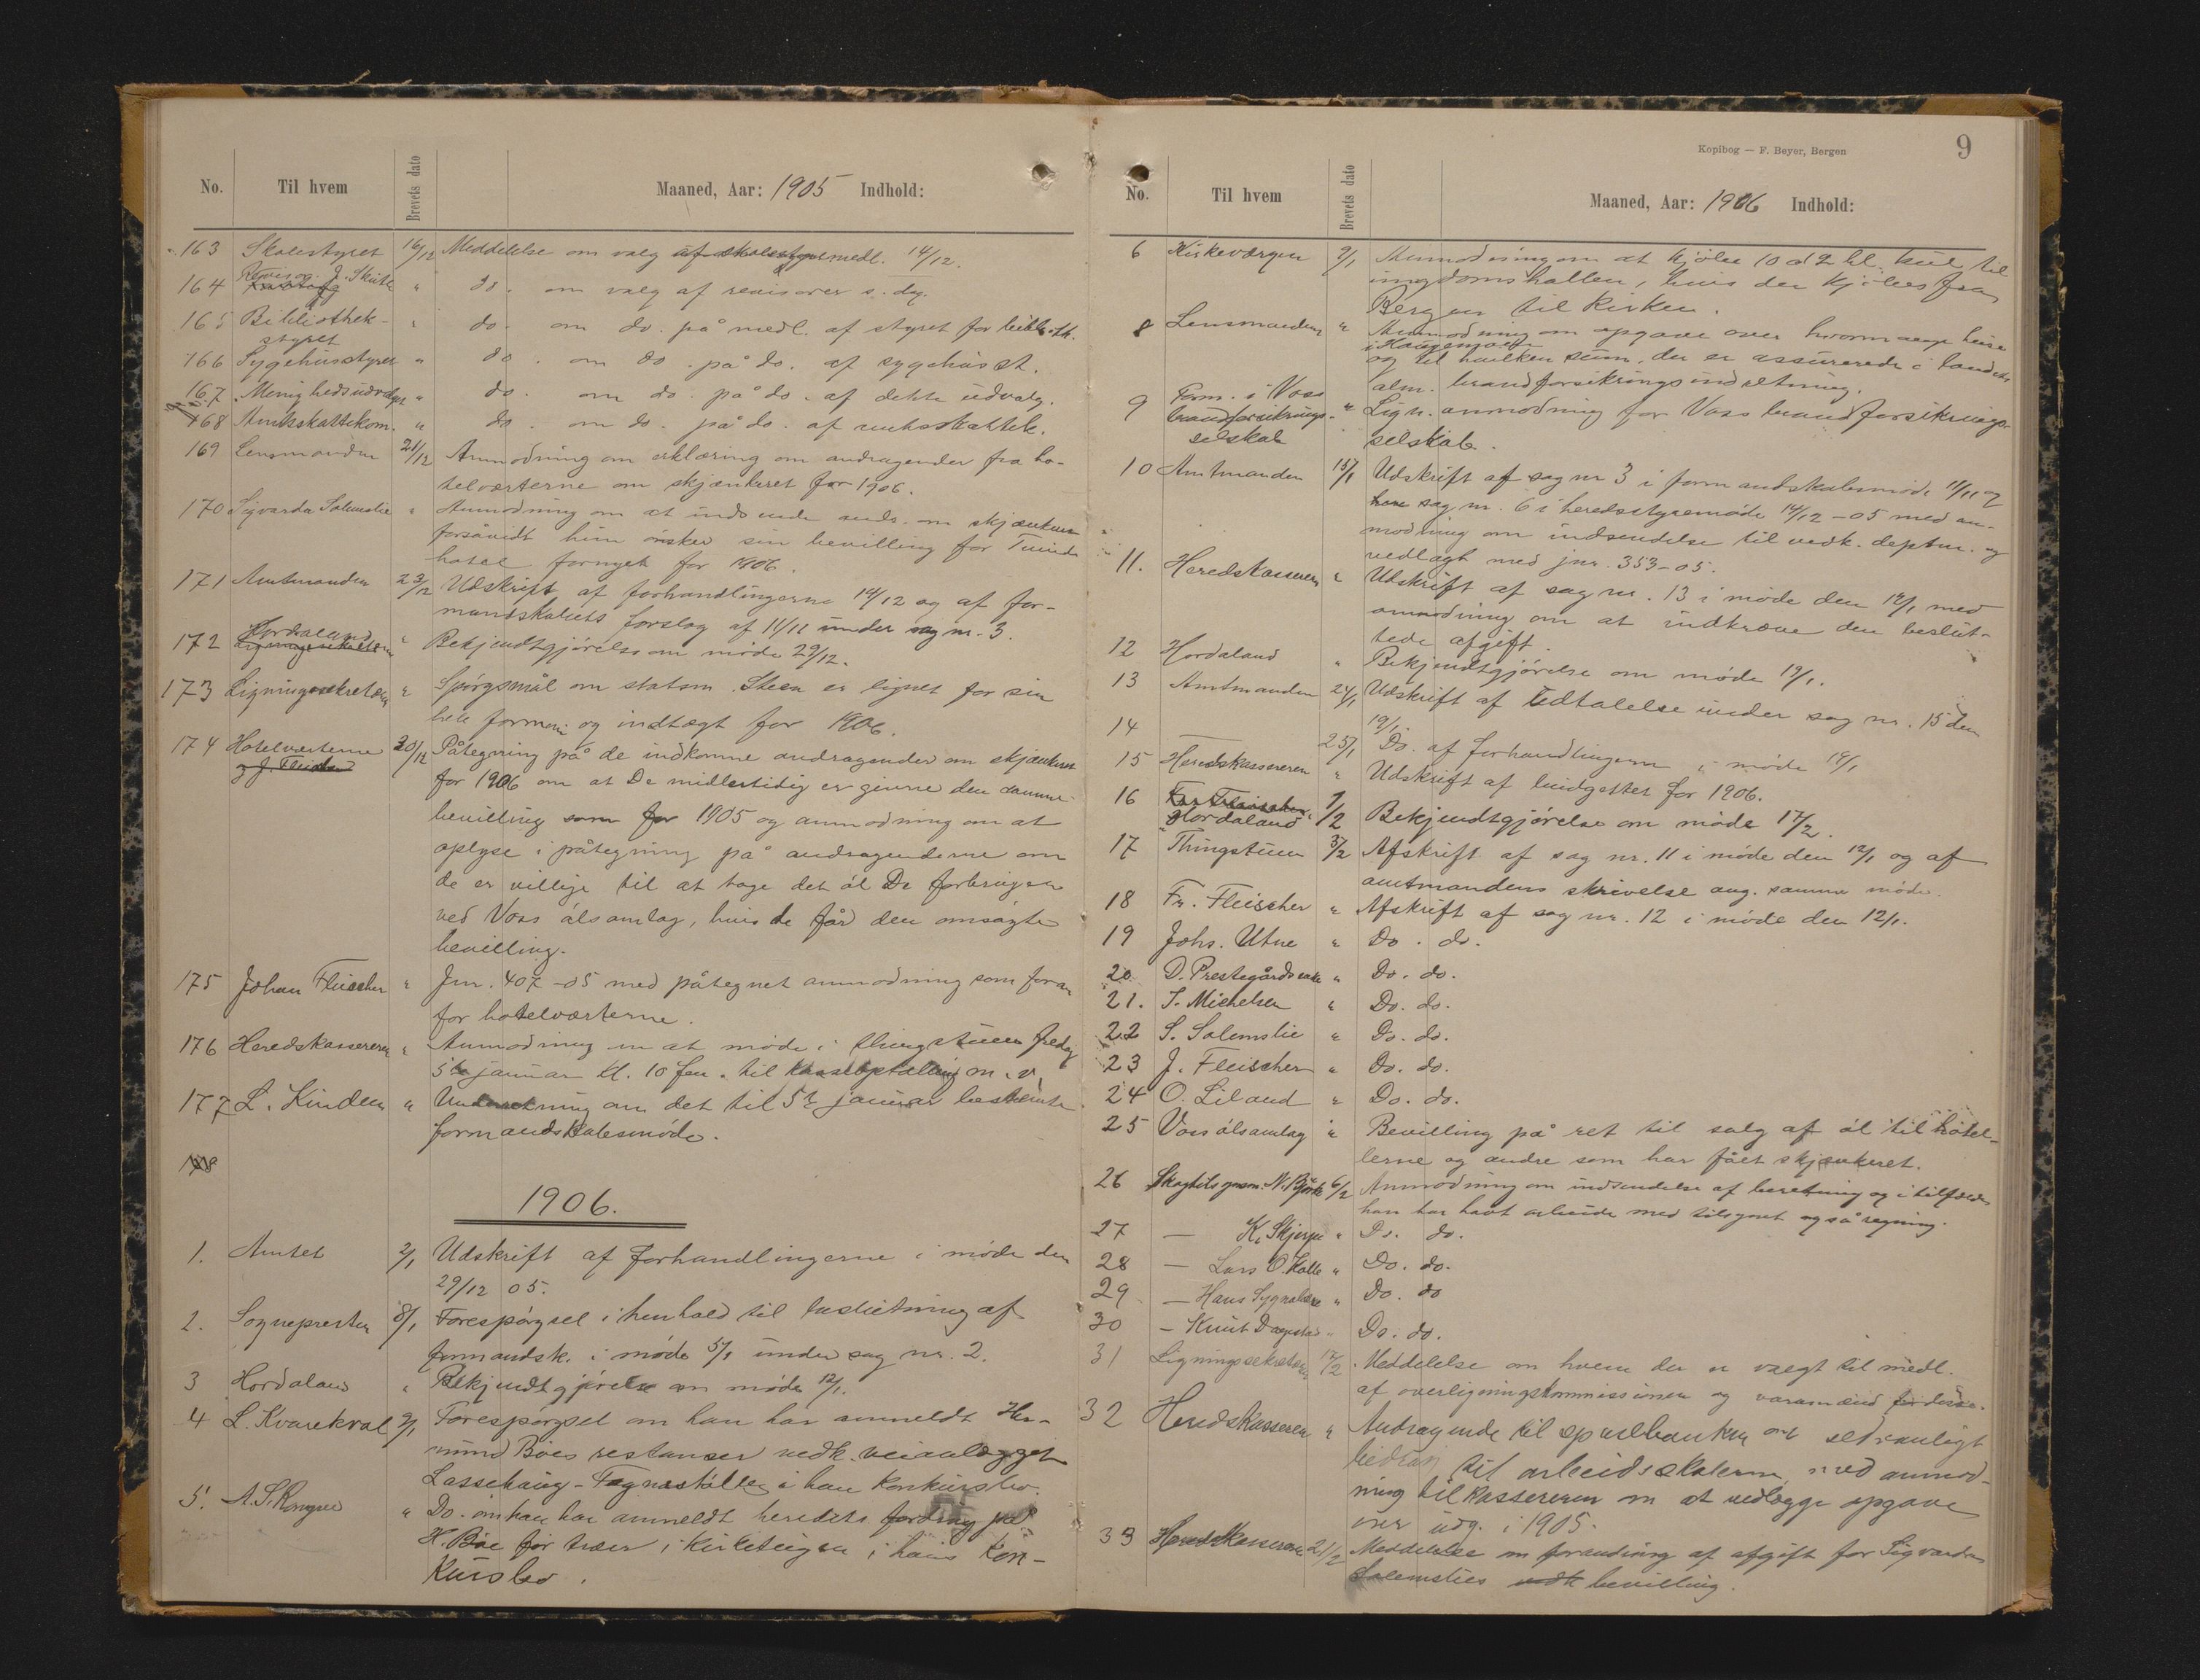 No. Til hvem Brevets dato Maaned, Aar: 1905 Indhold:
163 Skolestyret 16/12 Meddelelse om valg af skolestyremedl. 14/12.
164 J. Skutle " do. om valg af revisorer s. dag.
165 Bibliothek- " do. om do. på medl. af styret for biblioth.
styret
166 Sygehusstyret " do. om do. på do. af sygehusst.
167 Menighedsudvalget " do. om do. på do. af dette udvalg.
168 Amtsskattekom. " do. om do. på do. af amtsskattek.
169 Lensmanden 21/12 Anmodning om erklæring om andragender fra ho-
telværterne om skjænkeret for 1906.
170 Sigvarda Solemslie " Anmodning om at indsende ands. om skjænkeret
forsåvidt hun ønsker sin bevilling for Tvinde
hotel fornyet for 1906.
171 Amtmanden 23/12 Udskrift af forhandlingerne 14/12 og af for-
mandskabets forslag af 11/11 under sag nr. 3.
172 Hordaland " Bekjendtgjørelse om møde 29/12.
173 Ligningssekretæren " Spørgsmål om statsm. Steen er lignet for sin
hele formue og indtægt for 1906.
174 Hotelværterne 30/12 Påtegning på de indkomne andragender om skjænkeret
og J. Fleischer
for 1906 om at De midlertidig er givne den samme
bevilling som for 1905 og anmodning om at
oplyse i påtegning på andragenderne om
de er villige til at tage det øl De forbruger
ved Voss ølsamlag, hvis de får den omsøgte
bevilling.
175 Johan Fleischer " Jnr. 407-05 med påtegnet anmodning som foran
for hotelværterne.
176 Heredskassereren " Anmodning om at møde i thingstuen fredag
5te januar kl. 10 fm. til kasseoptælling m. v.
177 L. Kinden " Underretning om det til 5te januar bestemte
formandskabsmøde.
178
1906.
1. Amtet 2/1 Udskrift af forhandlingerne i møde den
29/12 05.
2. Sognepresten 8/1 Forespørgsel i henhold til beslutning af
formandsk. i møde 5/1 under sag nr. 2.
3 Hordaland " Bekjendtgjørelse om møde 12/1.
4 L. Kvarekval 9/1 Forespørgsel om han har anmeldt Her-
mund Bøes restanser vedk. veianlægget
Lassehaug - i han konkursbo.
5. A. S. Rongve " Do. om han har anmeldt heredets fordring på
H. Bøe for træer i Kirketeigen i hans kon-
kursbo.
Kopibog — F. Beyer, Bergen 9
No. Til hvem Brevets dato Maaned, Aar: 1906 Indhold:
6 Kirkeværgen 9/1 Anmodning om at kjøbe 10 a 12 hl. kul til
ungdomshallen, hvis der kjøbes fra
Bergen til kirken.
8 Lensmanden " Anmodning om opgave over hvormange huse
i Haugamoen
og til hvilken sum, der er assurerede i landets
alm. brandforsikringsindretning.
9 Form. i Voss " Lign. anmodning for Voss brandforsikrings-
brandforsikrings-
selskab selskab.
10 Amtmanden 15/1 Udskrift af sag nr 3 i formandskabsmøde 11/11 og
sag nr. 6 i heredsstyremøde 14/12-05 med an-
modning om indsendelse til vedk. deptm. og
vedlagt med jnr. 353-05.
11. Heredskassereren " Udskrift af sag nr. 13 i møde den 12/1 med
anmodning om at indkræve den beslut-
tede afgift.
12 Hordaland " Bekjendtgjørelse om møde 19/1.
13 Amtmanden 24/1 Udskrift af udtalelse under sag nr. 15 den
19/1
14 — 25/1 Do. af forhandlingerne i møde 19/1
15 Heredskassereren " Udskrift af budgettet for 1906.
16 Fr. Fleischer
"Hordaland" 1/2 Bekjendtgjørelse om møde 17/2.
17 Thingstuen 3/2 Afskrift af sag nr. 11 i møde den 12/1 og af
amtmandens skrivelse ang. samme møde.
18 Fr. Fleischer " Afskrift af sag nr. 12 i møde den 12/1.
19 Johs. Utne " Do. do.
20 D. Prestegårds " Do. do.
21. S. Michelsen " Do. do.
22 S. Solemslie " Do. do.
23 J. Fleischer " Do. do.
24 O. Liland " Do. do.
25 Voss ølsamlag " Bevilling på ret til salg af øl til hotel-
lerne og andre som har fået skjænkeret.
26 N. Bjørke 6/2 Anmodning om indsendelse af beretning og i tilfælde
han har havt arbeide med tilsynet også regning.
27 — K. Skjerpe " Do. do.
28 — Lars O. Kolle " Do. do.
29 — Hans " Do. do
30 — Knut Dagestad " Do. do.
31 Ligningssekretæren 17/2 Meddelelse om hvem der er valgt til medl.
af overligningskommissionen og varamænd for disse.
32 Heredskassereren " Andragende til sparebanken om sedvanligt
bidrag til arbeidsskolerne med anmod-
ning til kassereren om at vedlægge opgave
over udg. i 1905.
33 Heredskassereren 21/2 Meddelelse om forandring af afgift for Sigvarda
Solemslies vedk bevilling.